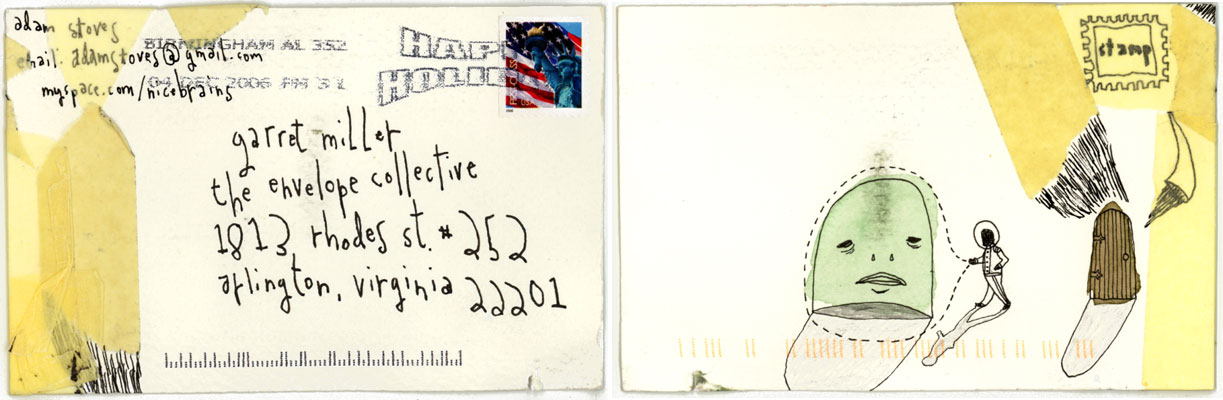 adam stoves
email: adamstoves@gmail.com
myspace.com/nicebrains
BIRMINGHAM AL 352
04 DEC 2006 PM 3 L
HAPP
HOLID
FIRST-CLASS
USA
garret miller
the envelope collective
1813 rhodes st. #252
arlington, virginia 22201
stamp